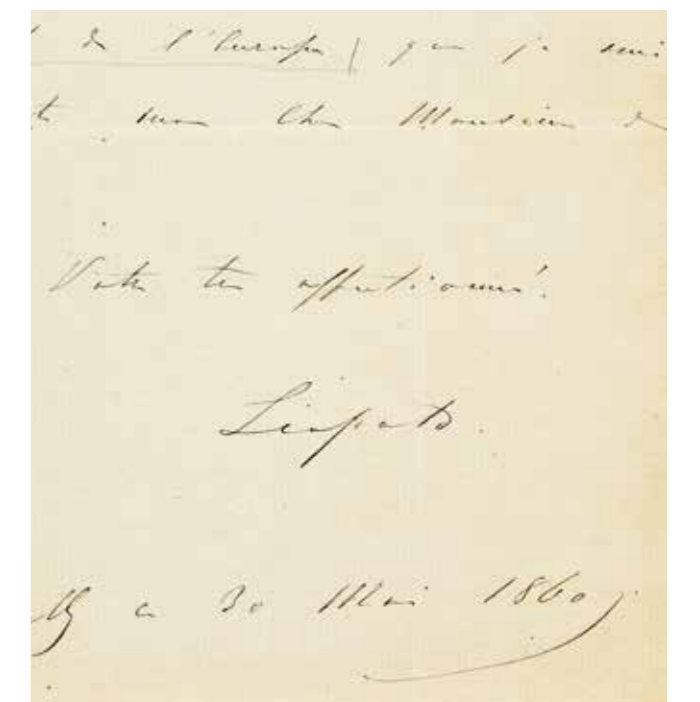 de l'Europe | que je suis
mon cher Monsieur de
Votre très affectionné.
Léopold.
a 30 Mai 1860